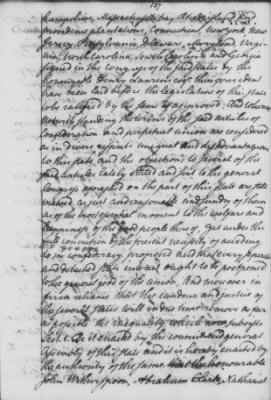 127
Hampshire, Massachusetts bay, Rhode Island and
providence plantations, Connecticut, New York, New
Jersey, Pennsylvania, Delaware, Maryland, Virgi
nia, North Carolina, South Carolina and Georgia
signed in the Congress of the said States by the
honorable Henry Laurens esqr. their president
have been laid before the legislature of this state
to be ratified by the same if approved; And whereas
notwithstanding the terms of the said articles of
Confederation and perpetual union are considered
as in divers respects unequal and disadvantageous
to this state, and the objections to several of the
said articles lately stated and sent to the general
Congress aforesaid on the part of this state are still
viewed as just and reasonable and sundry of them
as of the most essential moment to the welfare and
happiness of the good people hereof, Yet under the
full conviction of the present necessity of acceding
to the confederacy proposed and that every separate
and detached state interest ought to be postponed
to the general good of the union, And moreover in
firm reliance that the candour and justice of
the several states will in due time remove as far
as possible the inequality which now subsists
Sect. 1. Be it enacted by the council and general
assembly of this state and it is hereby enacted by
the authority of the same that the honourable
John Witherspoon, Abraham Clark, Nathaniel